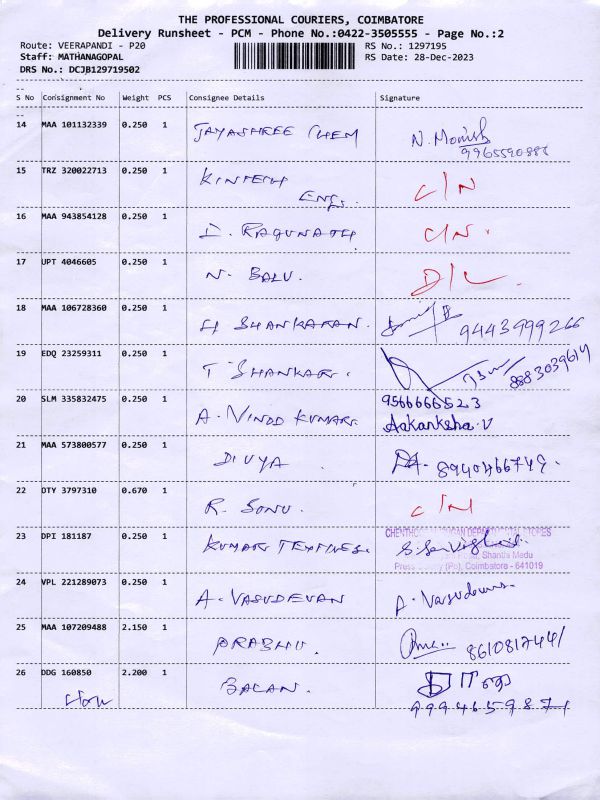 THE PROFESSIONAL COURIERS, COIMBATORE
Delivery Runsheet - PCM - Phone No.:0422-3505555 - Page No.:2
Route: VEERAPANDI - P20 RS No.: 1297195
Staff: MATHANAGOPAL RS Date: 28-Dec-2023
DRS No.: DCJB129719502
S No Consignment No Weight PCS Consignee Details Signature
14 MAA 101132339 0.250 1 JAYASHREE CHEM N. Monish
9965590886
15 TRZ 320022713 0.250 1 KINTECH C/N
ENGs.
16 MAA 943854128 0.250 1 D. RAGUNATH C/N.
17 UPT 4046605 0.250 1 N. BALU. D/L
18 MAA 106728360 0.250 1 H SHANKARAN. 9443999266
19 EDQ 23259311 0.250 1 T SHANKAR. 8883039614
20 SLM 335832475 0.250 1 A. VINOD KUMAR. 9566666523
Aakanksha.V
21 MAA 573800577 0.250 1 DIVYA 8940466749.
22 DTY 3797310 0.670 1 R. SONU. C/N
23 DPI 181187 0.250 1 KUMAR TEXTILES.
DEPARTMENTAL STORES
Shanthi Medu
(Po), Coimbatore - 641019
24 VPL 221289073 0.250 1 A. VASUDEVAN A. Vasudevan.
25 MAA 107209488 2.150 1 PRABHU. 8610817441
26 DDG 160850 2.200 1 BALAN.
9994659871